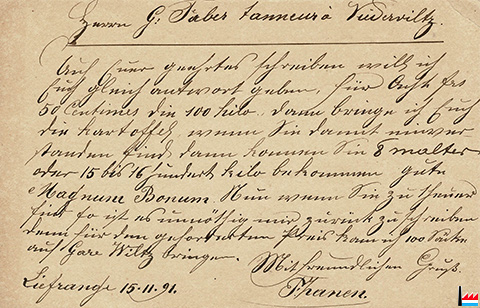 Herrn G: Faber tanneur à Niederwiltz.
Auf Euer geehrtes schreiben will ich
Euch gleich antwort geben, für Acht frs
50 Centimes die 100 kilo, dann bringe ich Euch
die Kartoffel, wenn Sie damit einver
standen sind, dann konnen Sie 8 malter
oder 15 bis 16 hundert kilo bekommen gute
Magnum Bonum. Nun wenn Sie zu theuer
sind so ist es unnöthig mir zurück zu schreiben
denn für den geforderten Preis kann ich 100 Säcke
auf Gare Wiltz bringen.
Mit freundlichen Gruß.
Liefrange 15.11.91. Thanen.